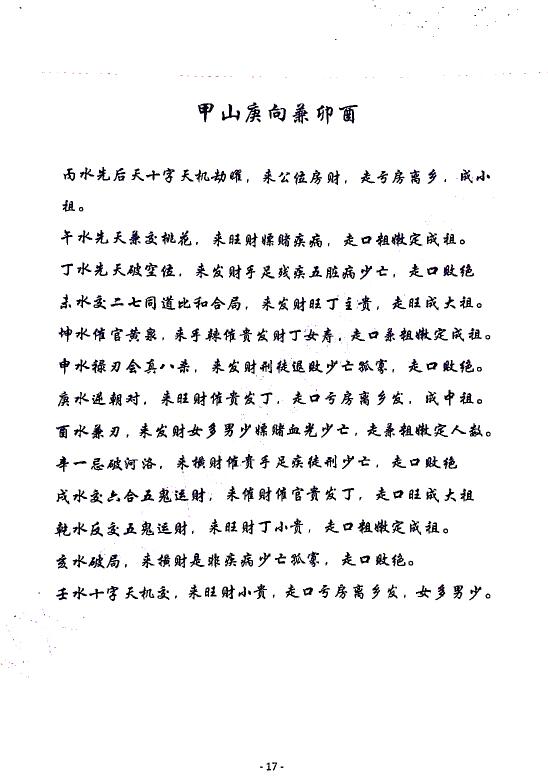 甲山庚向兼卯酉
丙水先后天十字天机劫曜，来公位房财，走亏房离乡，成小
祖。
午水先天兼交桃花，来旺财嫖赌疾病，走口粗嫩定成祖。
丁水先天破空位，来发财手足残疾五脏病少亡，走口败绝
未水交二七同道比和合局，来发财旺丁主贵，走旺成大祖。
坤水催官黄泉，来手辣催贵发财丁女寿，走口兼粗嫩定成祖。
申水禄刃会真八杀，来发财刑徒退败少亡孤寡，走口败绝。
庚水逆朝对，来旺财催贵发丁，走口亏房离乡发，成中祖。
酉水兼刃，来发财女多男少嫖赌血光少亡，走兼粗嫩定人数。
辛一忌破河洛，来横财催贵手足疾徒刑少亡，走口败绝
戌水交六合五鬼运财，来催财催官贵发丁，走口旺成大祖
乾水反交五鬼运财，来旺财丁小贵，走口粗嫩定成祖。
亥水破局，来横财是非疾病少亡孤寡，走口败绝。
壬水十字天机交，来旺财小贵，走口亏房离乡发，女多男少。
- 17 -